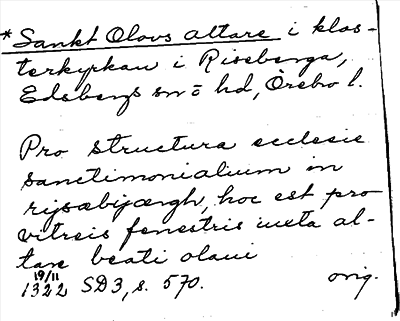 *Sankt Olovs altare i klos-
terkyrkan i Riseberga,
Edsbergs sn o hd, Örebro l.
Pro structura ecclesie
sanctimonialium in
rijsæbijærgh, hoc est pro
vitreis fenestris iuxta al-
tare beati olaui
19/11
1322 SD3, s. 570. orig.